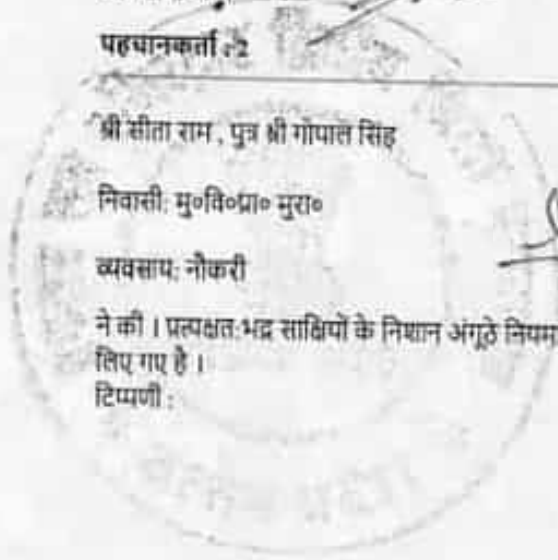 पहचानकर्ता : 2
श्री सीता राम , पुत्र श्री गोपाल सिंह
निवासी: मु०वि०प्रा० मुरा०
व्यवसाय: नौकरी
ने की । प्रत्यक्षत:भद्र साक्षियों के निशान अंगूठे नियम
लिए गए है ।
टिप्पणी :